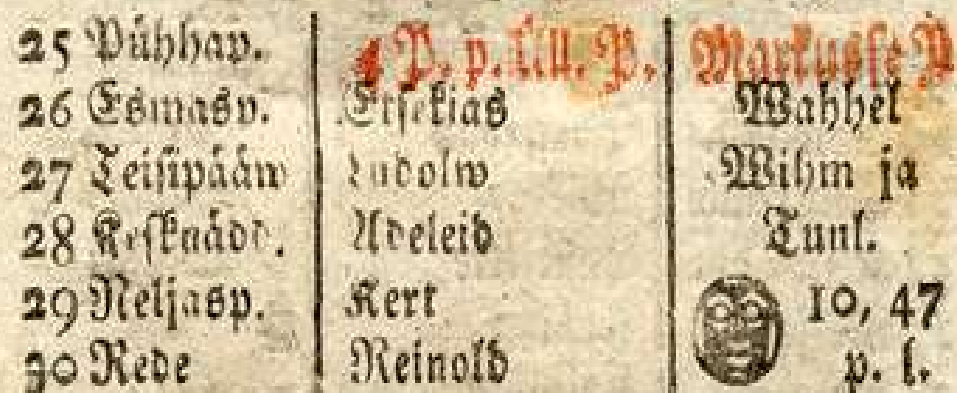 25 Pühhap. 4 P. p. Üll. P. Markusse P
26 Esmasp. Etsekias Wahhel
27 Teisipääw Ludolw Wihm ja
28 Kesknädd. Adeleid Tunl.
29 Neljasp. Kert 10, 47
30 Rede Reinold p. l.